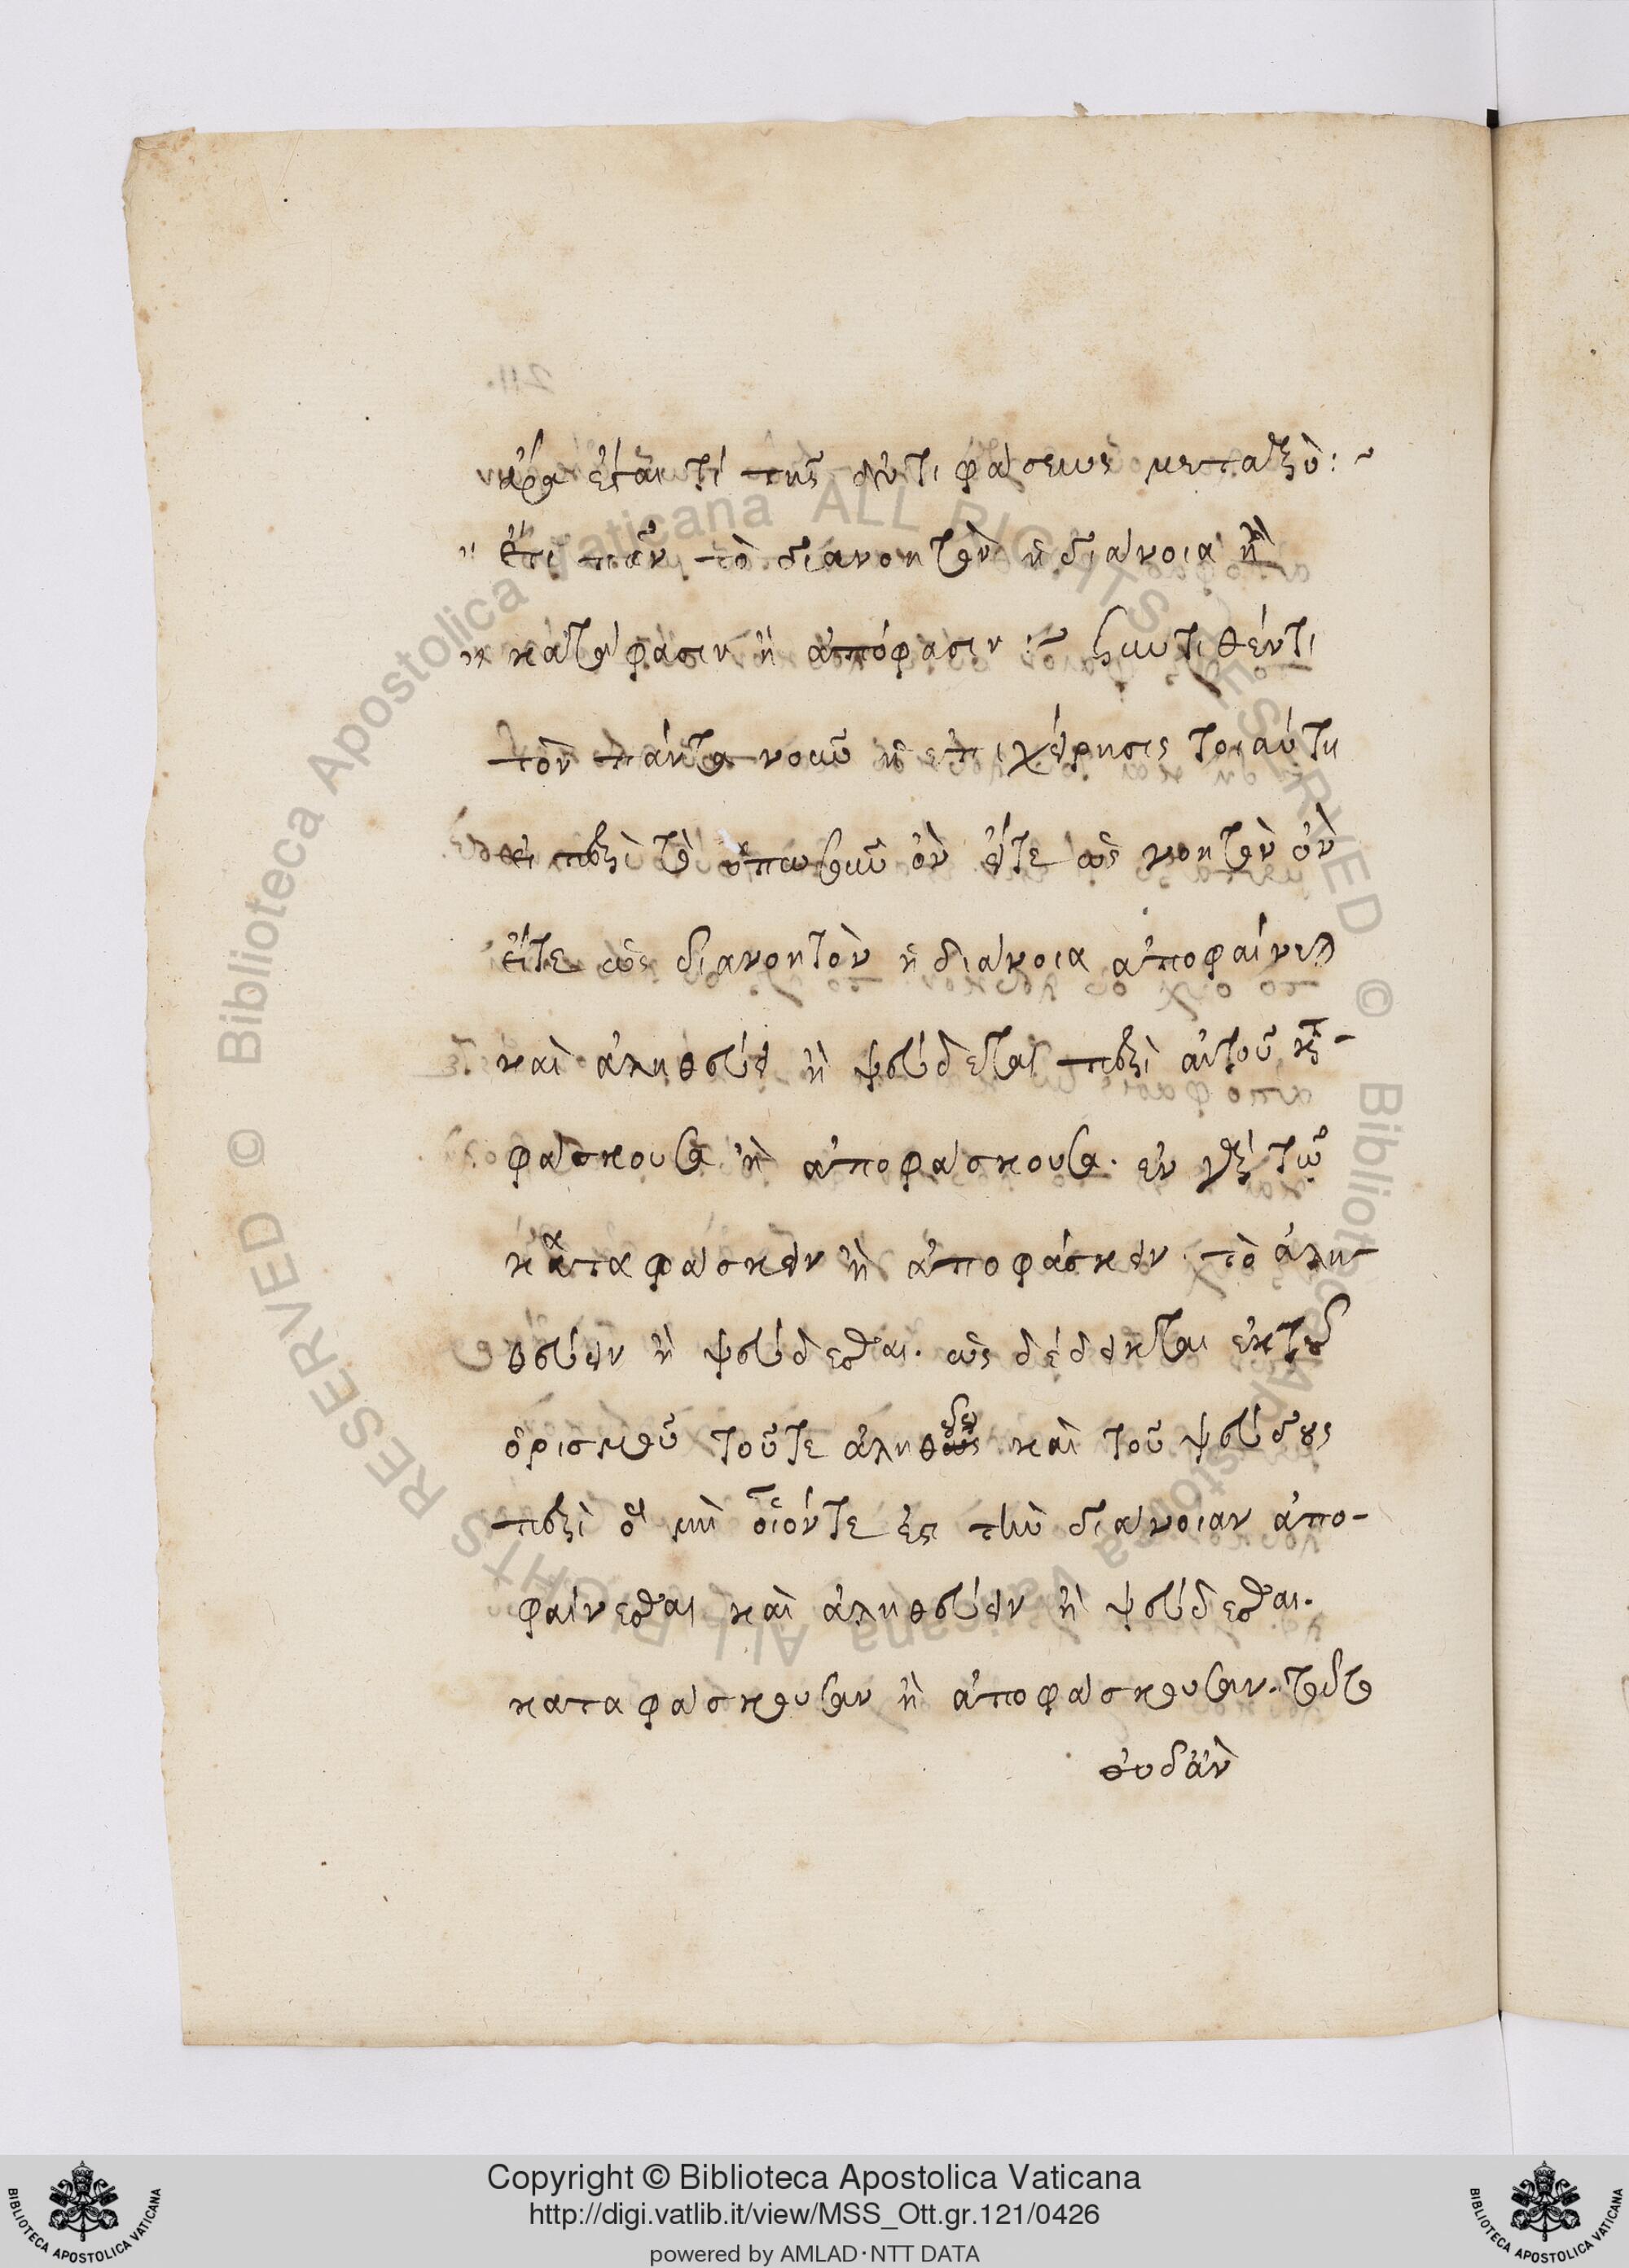 ἄρα ἔσται τί τῆς ἀντιφάσεως μεταξύ:~
" ἔτι πᾶν τὸ διανοητὸν ἡ διάνοια ἢ
" κατάφασιν ἢ ἀπόφασιν:~ συντιθέντι
τὸν πάντα νοῦν ἡ ἐπιχείρησις τοιαύτη
εἰ περὶ τὸ ὁπωσοῦν ὂν εἴτε ὡς νοητὸν ὂν
εἴτε ὡς διανοητὸν ἡ διάνοια ἀποφαίνεται
καὶ ἀληθεύει ἢ ψεύδεται περὶ αὐτοῦ κατα-
φάσκουσα ἢ ἀποφάσκουσα. ἐν γὰρ τῷ
καταφάσκειν ἢ ἀποφάσκειν τὸ ἀλη-
θεύειν ἢ ψεύδεσθαι. ὡς δέδεικται ἐκ τοῦ
ὁρισμοῦ τοῦτε ἀληθοῦς καὶ τοῦ ψεύδους
περὶ ὃ μὴ οἷόντε ἐστι τὴν διάνοιαν ἀπο-
φαίνεσθαι καὶ ἀληθεύειν ἢ ψεύδεσθαι.
καταφάσκουσαν ἢ ἀποφάσκουσαν. τοῦτο
οὐδὰν
Copyright © Biblioteca Apostolica Vaticana
http://digi.vatlib.it/view/MSS_Ott.gr.121/0426
powered by AMLAD·NTT DATA